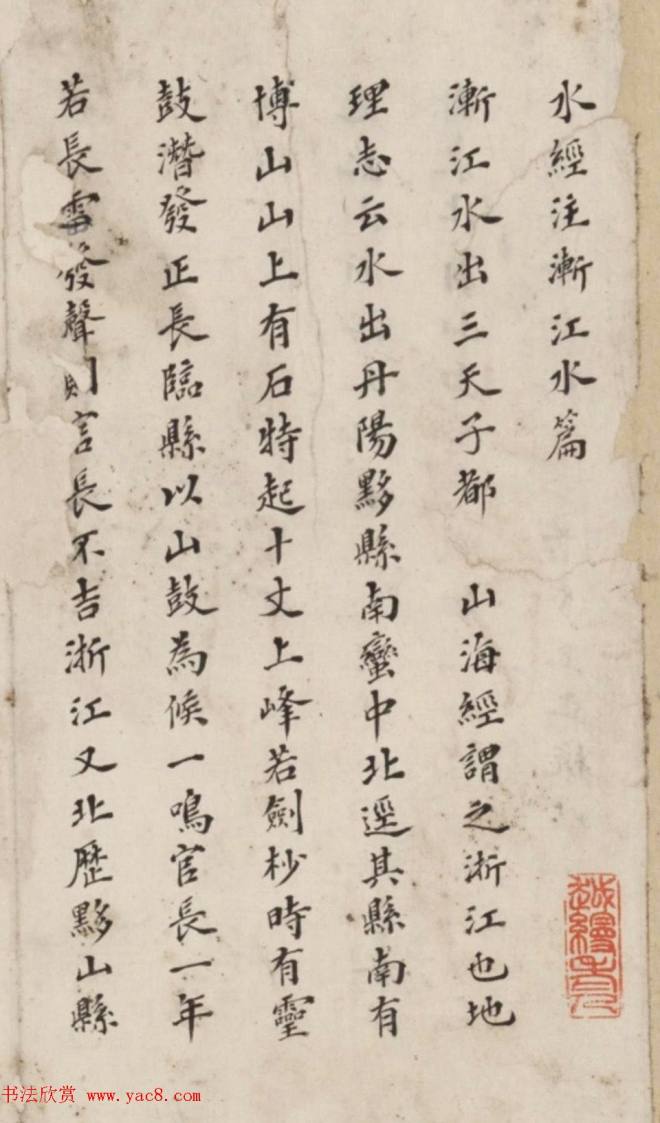 水經注漸江水篇
漸江水出三天子都　山海經謂之浙江也地
理志云水出丹陽黟縣南蠻中北逕其縣南有
博山山上有石特起十丈上峰若劍杪時有靈
鼓潛發正長臨縣以山鼓為候一鳴官長一年
若長雷發聲則言長不吉浙江又北歷黟山縣
书法欣赏 www.yac8.com